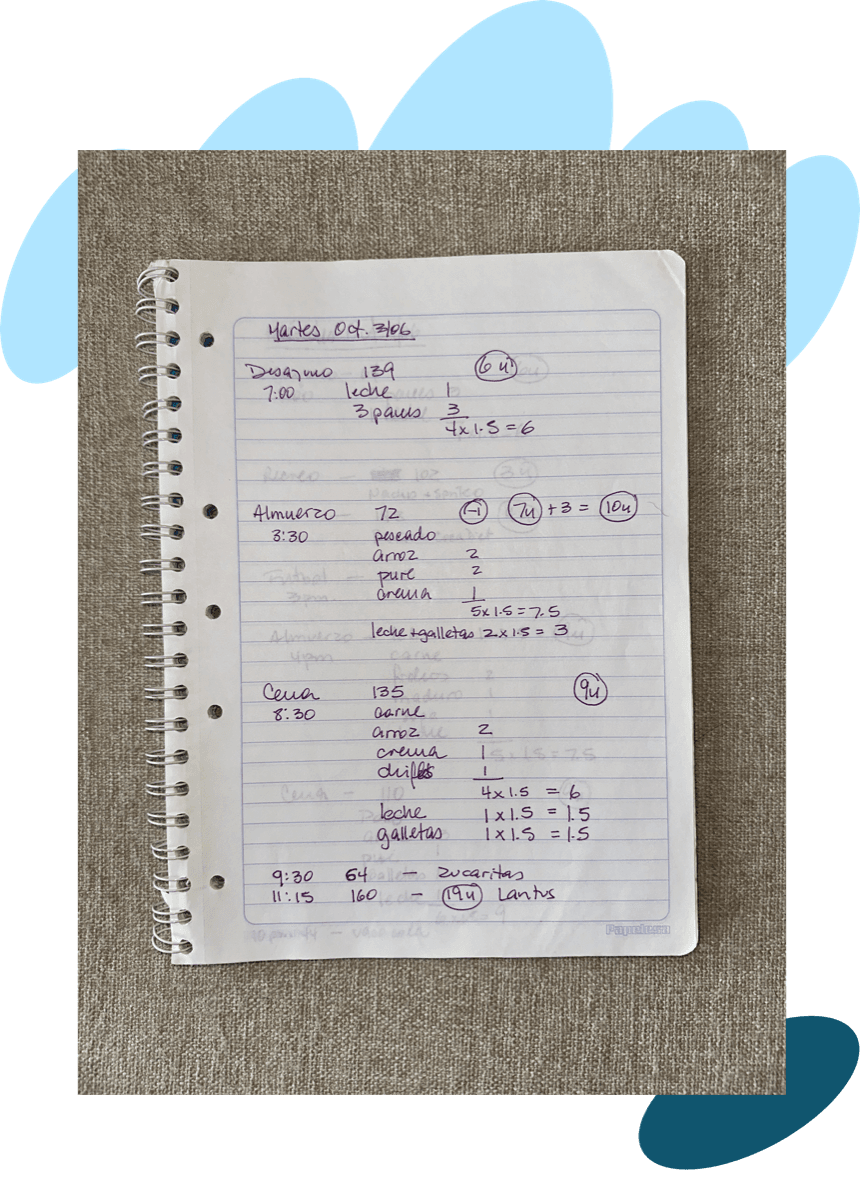 Martes Oct. 3/06
Desayuno 139 6u
7:00 leche 1
3 panes 3
4x1.5 = 6
Almuerzo 72 -1 7u + 3 = 10u
3:30 pescado
arroz 2
pure 2
crema 1
5x1.5 = 7.5
leche+galletas 2x1.5 = 3
Cena 135 9u
8:30 carne
arroz 2
crema 1
chifles 1
4x1.5 = 6
leche 1x1.5 = 1.5
galletas 1x1.5 = 1.5
9:30 64 – zucaritas
11:15 160 – 19u Lantus